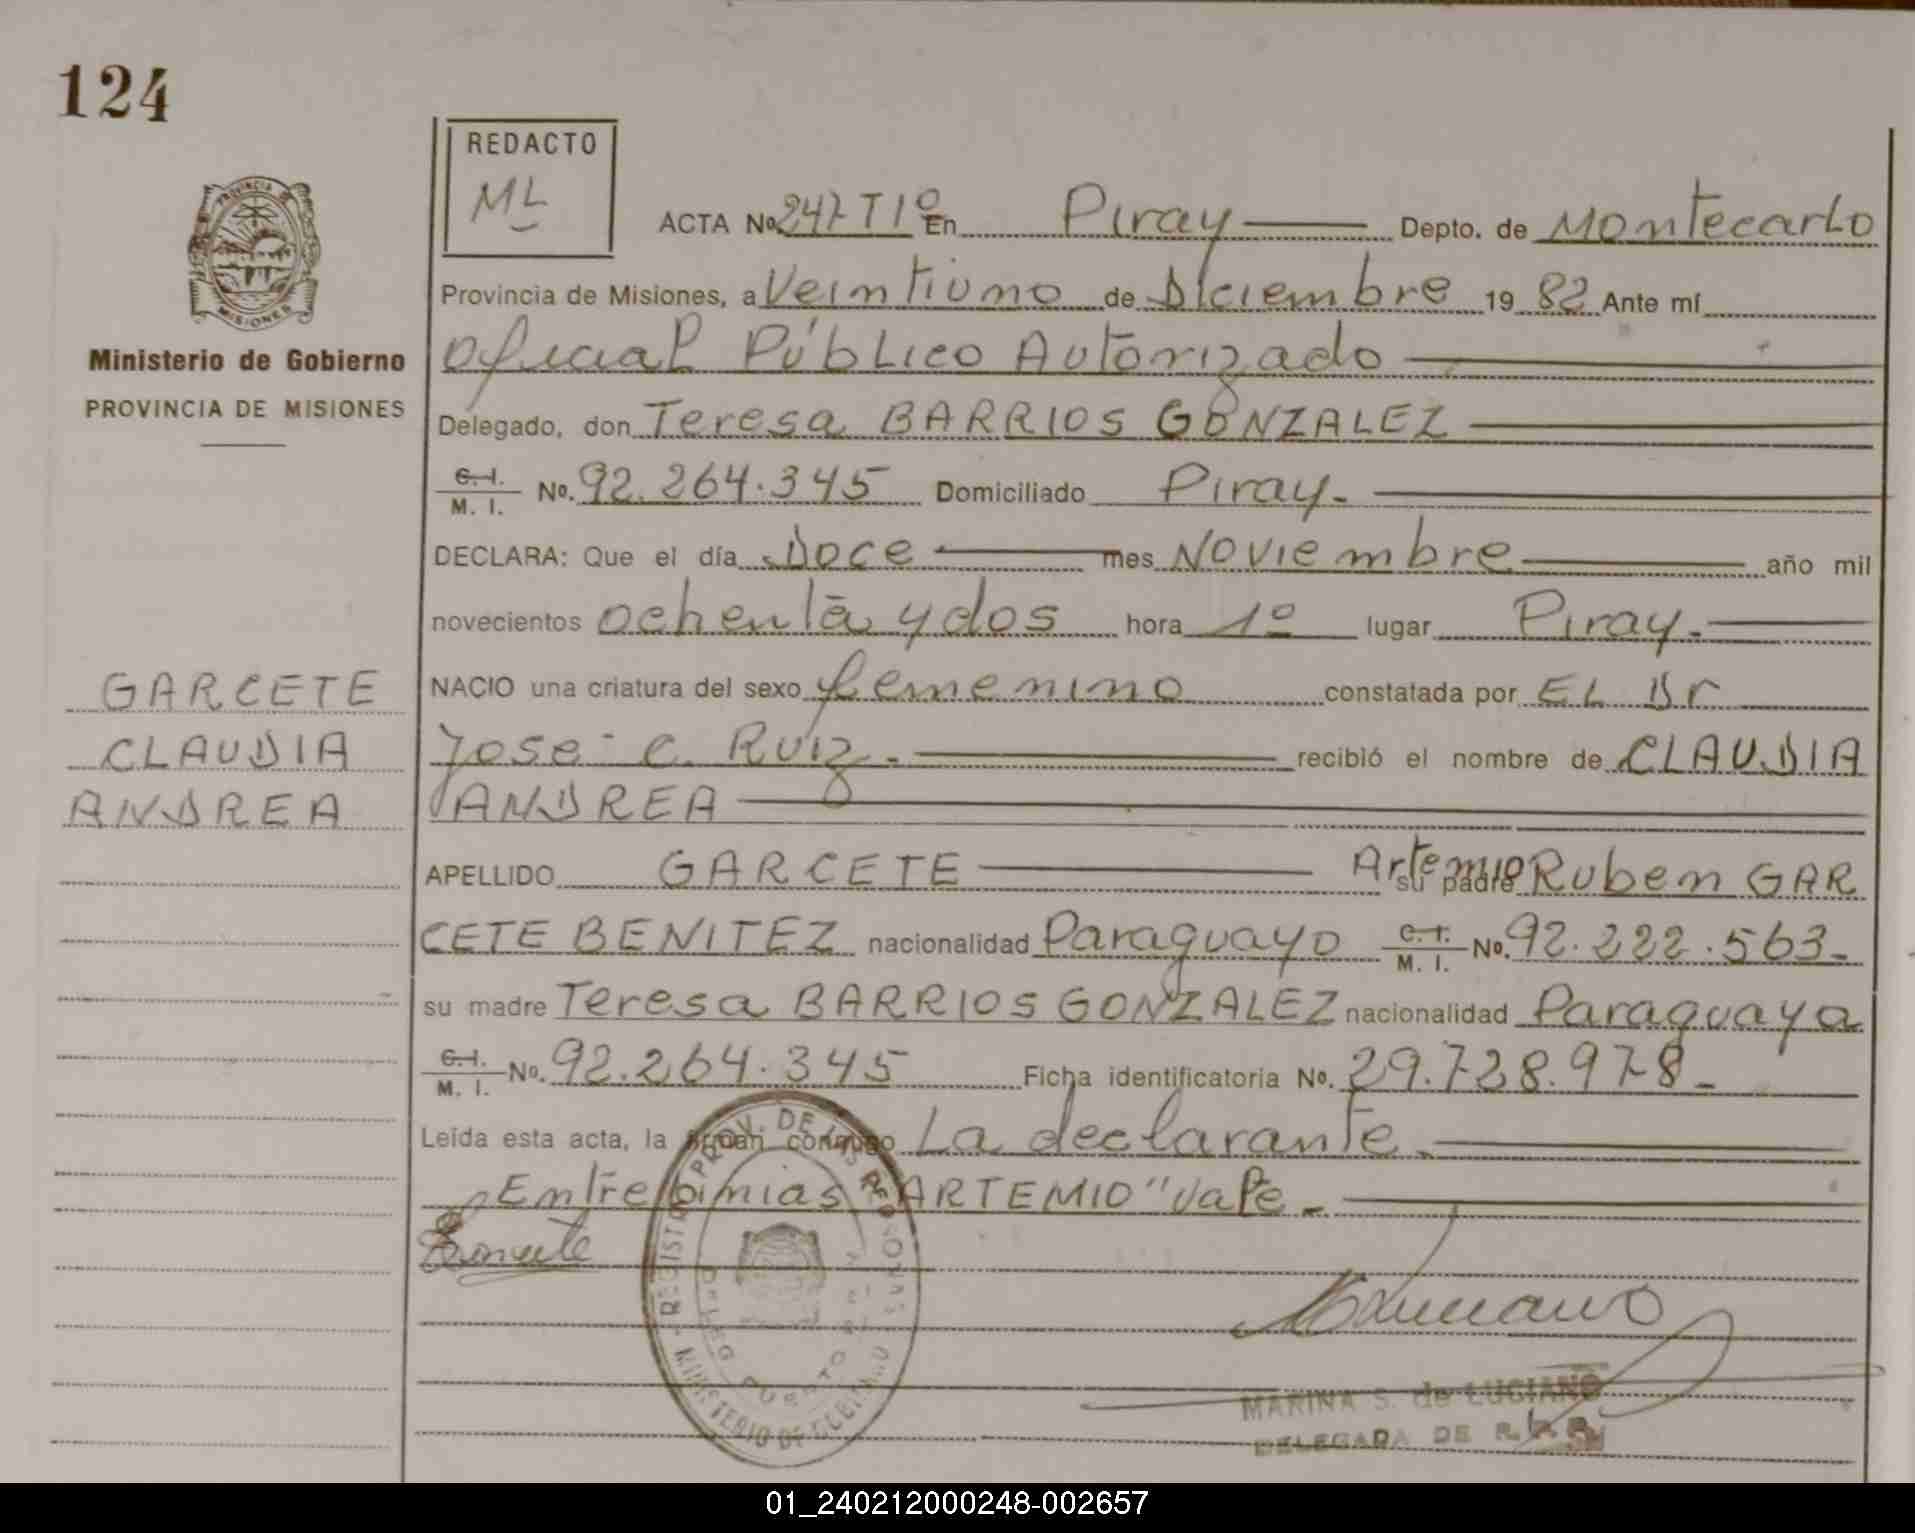 124
REDACTO
ML
ACTA No. 247 T 1º En Piray Depto. de Montecarlo
Provincia de Misiones, a Veintiuno de Diciembre 19 82 Ante mí
Oficial Público Autorizado
Ministerio de Gobierno
PROVINCIA DE MISIONES
Delegado, don Teresa BARRIOS GONZALEZ
C. I. M. I. No. 92.264.345 Domiciliado Piray.
DECLARA: Que el día Doce mes Noviembre año mil
novecientos ochenta y dos hora 1º lugar Piray.
GARCETE
CLAUDIA
ANDREA
NACIO una criatura del sexo femenino constatada por EL Dr
José C. Ruiz. recibió el nombre de CLAUDIA
ANDREA
APELLIDO GARCETE su padre Artemio Ruben GAR
CETE BENITEZ nacionalidad Paraguayo C. I. M. I. No. 92.222.563.
su madre Teresa BARRIOS GONZALEZ nacionalidad Paraguaya
C. I. M. I. No. 92.264.345 Ficha identificatoria No. 29.728.978.
Leída esta acta, la firman conmigo La declarante.
Entrelinias "ARTEMIO" vale.
MARINA S. de LUCIANO
DELEGADA DE
PROVINCIA DE
MISIONES
REGISTRO PROV. DE LAS PERSONAS
MINISTERIO DE GOBIERNO
DELEG PUERTO
01_240212000248-002657